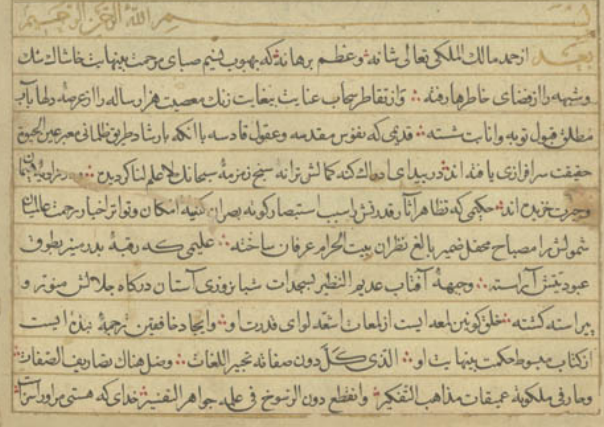 بسم الله الرحمن الرحیم
بعد از حمد مالک الملکی تعالی شانه و عظم برهانه که بهبوب نسیم صبای مرحمت بینهایت خاشاک شک
و شبهه را از فضای خاطرها رفته و از تقاطر سحاب عنایت بیغایت زنک معصیت هزار ساله را از عرصه دلها بآب
مطلق قبول توبه و انابت شسته قدیمی که نفوس مقدسه و عقول قادسه با آنکه بارشاد طریق ظلمانی
حقیقت سرافرازی یافته اند در بیدای ادراک کنه کمالش ترانه سنج زمزمهٔ سبحانک لا علم لنا کردیده
و حیرت خزیده اند حکیمی که تظاهر آثار قدرتش را سبب استبصار کونه بصران کتیبه امکان و تواتر اخبار رحمت
شمولش را مصباح محفل ضمیر بالغ نظران بیت الحرام عرفان ساخته علیمی که رقبهٔ بدر منیر بطوق
عبودیتش آراسته و جبههٔ آفتاب عدیم النظیر بسجدات شبانروزی آستان درکاه جلالش منور و
پیراسته کشته خلق کونین لمعه ایست از لمعات اشعه لوای قدرت او و ایجاد خافقین ترجمهٔ نبذه ایست
از کتاب مبسوط حکمت بینهایت او الذی کل دون صفاته تحبیر اللغات وضل هناک تصاریف الصفات
وحار فی ملکوته عمیقات مذاهب التفکیر وانقطع دون الرسوخ فی علمه جوامع التفسیر خدای که هستی مر او را